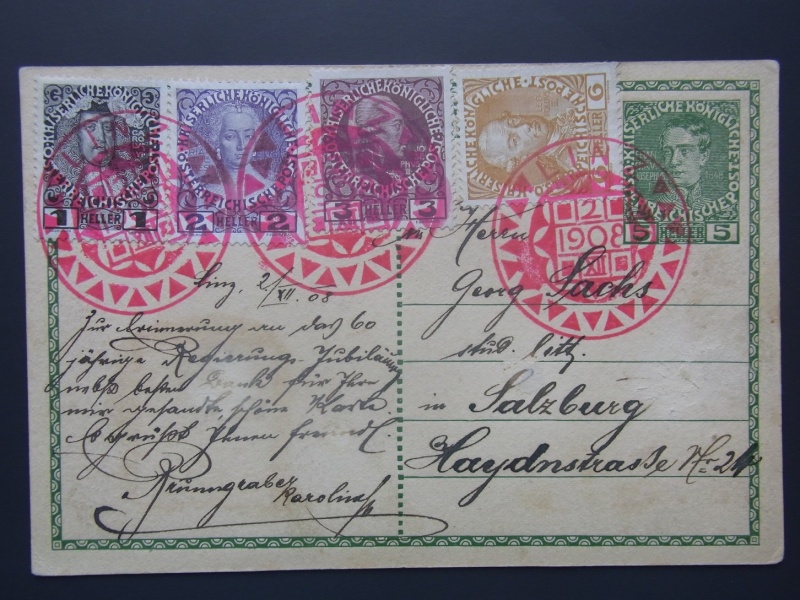 KAISERLICHE KÖNIGLICHE ÖSTERREICHISCHE POST
1 HELLER 1
KAISERLICHE KÖNIGLICHE ÖSTERREICHISCHE POST
2 HELLER 2
KAISERLICHE KÖNIGLICHE ÖSTERREICHISCHE POST
3 HELLER 3
KAISERLICHE KÖNIGLICHE ÖSTERREICHISCHE POST
6 HELLER
KAISERLICHE KÖNIGLICHE ÖSTERREICHISCHE POST
JOSEPH 1848
5 HELLER 5
2
1908
XII
Linz, 2/XII. 08
Zur Erinnerung an das 60
jährige Regierungs-Jubiläum
nebst besten Dank für Ihre
mir gesandte schöne Karte.
Es grüßt Ihnen freundl.
Brunngraber
Karoline
Herrn
Georg Sachs
stud.
in Salzburg
Haydnstrasse Nr.